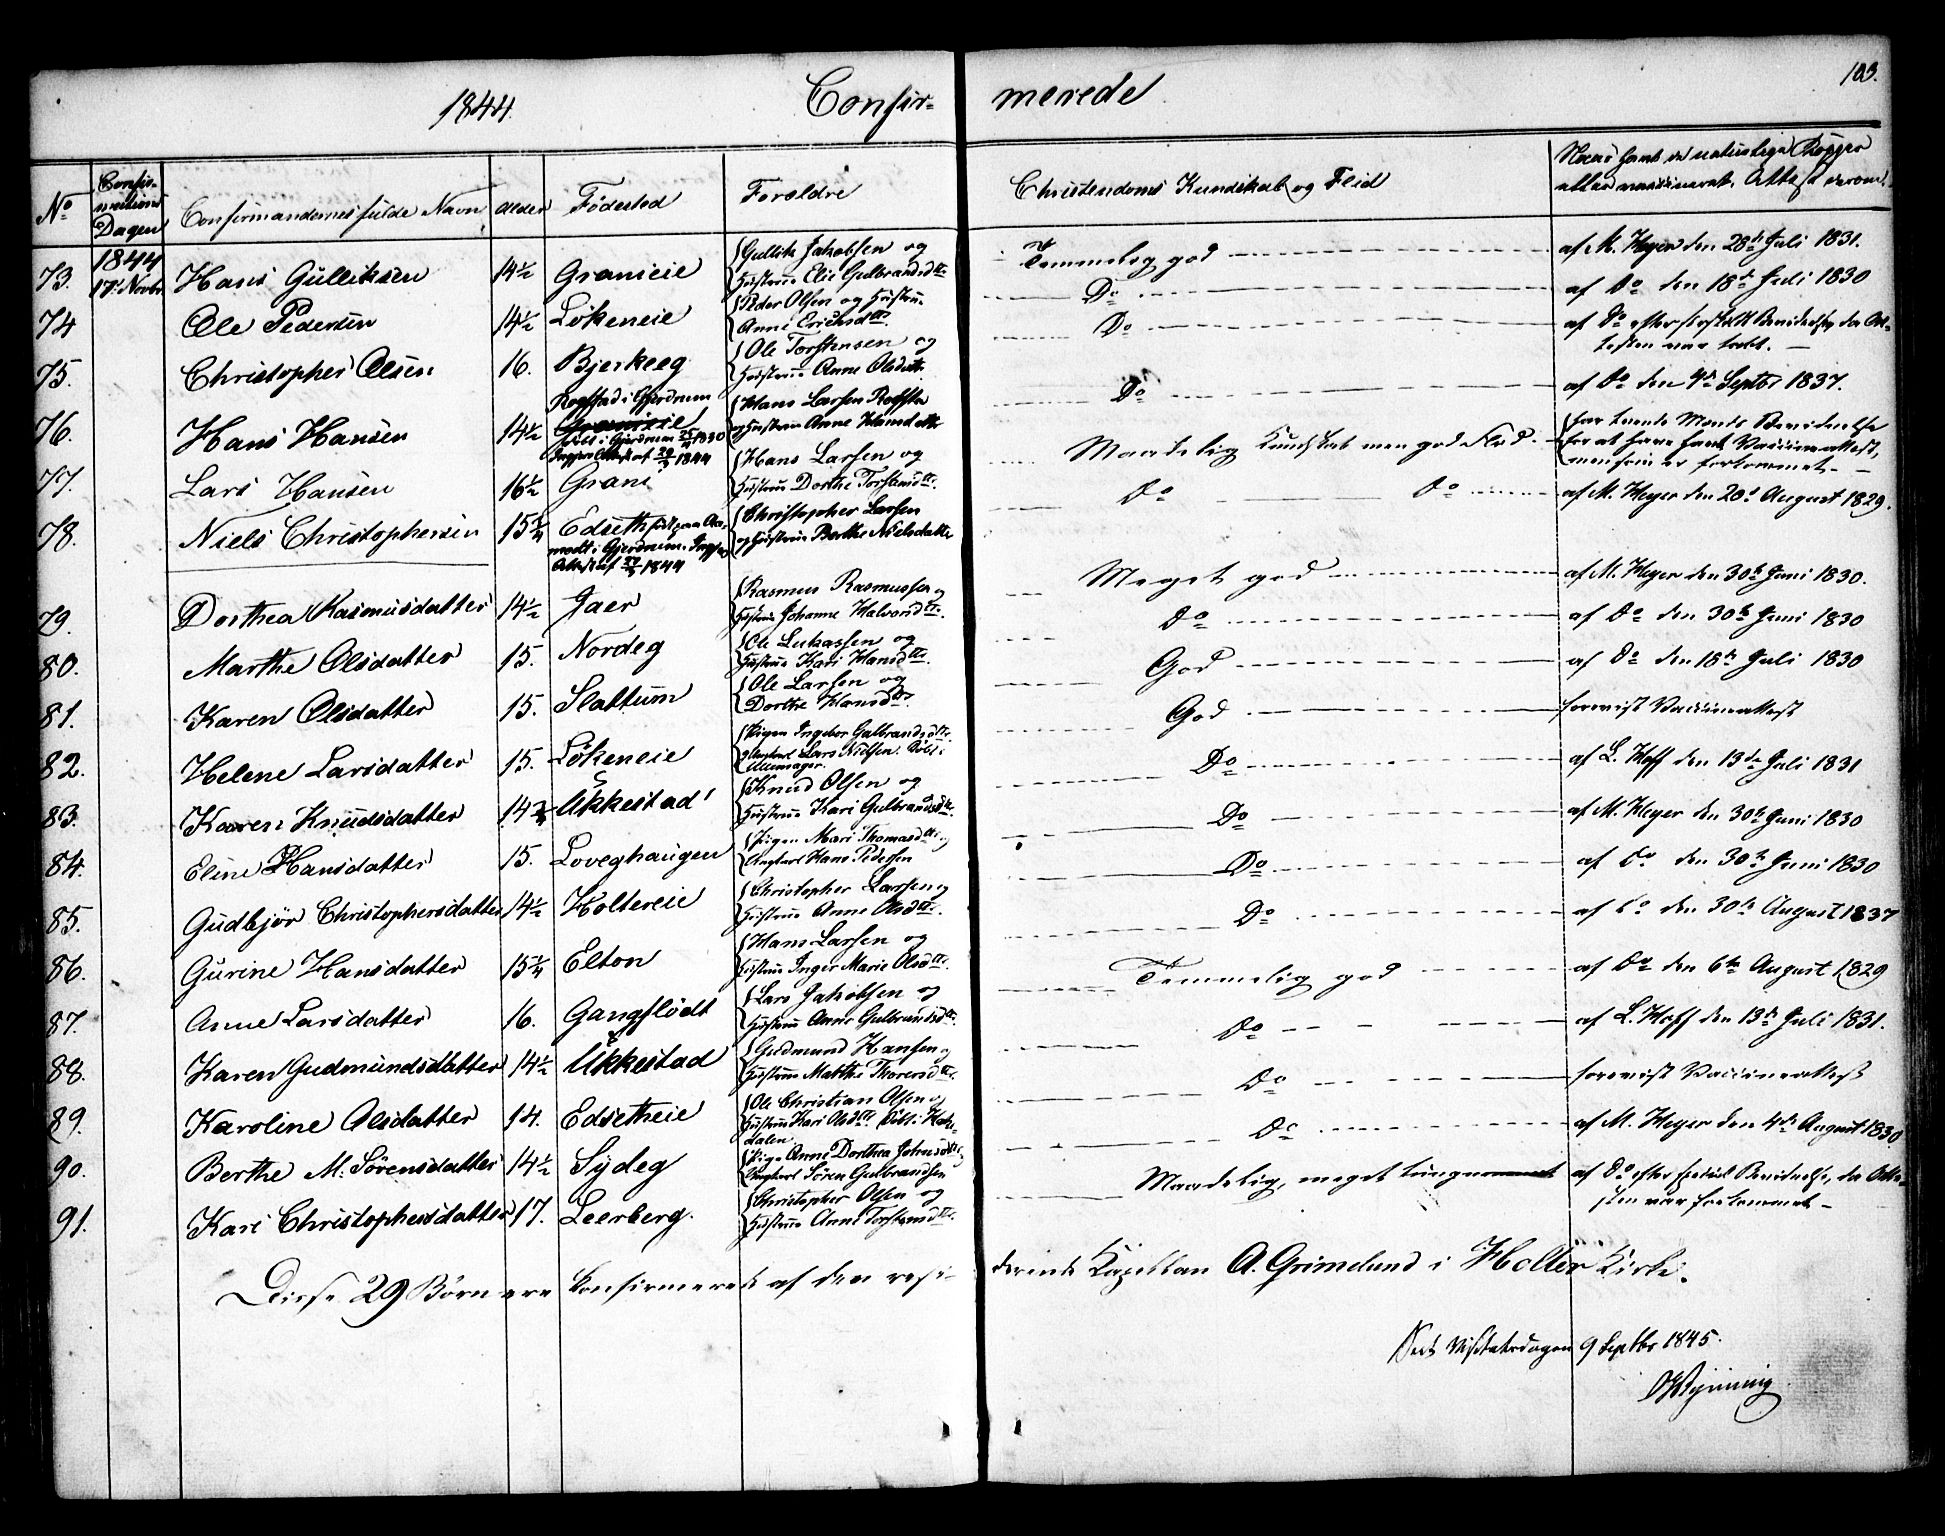 1844. Confir- merede 103.
No Confirmations Dagen Confirmandernes fulde Navn Alder Födested Forældre Christendoms Kundskab og Flid
1844
17. Novbr.
73. Hans Gulliksen 14½ Granieie Gullik Jakobsen og Hustrue Elie Gulbrandsdtr Temmelig god af M. Heyer den 28de Juli 1831.
74 Ole Pedersen 14½ Lökeneie Peder Olsen og Hustrue Anne Ericksdtr Do af Do den 18de Juli 1830
75. Christopher Olsen 16. Bjerkeeg Ole Torstensen og Hustrue Anne Olsdatter Do
76. Hans Hansen 14½ Rogstad i Gjerdrum Hans Larsen og Hustrue Anne Hansdatter Do af Do den 4de Septbr 1837.
77. Lars Hansen 16½ Grani Hans Larsen og Hustrue Dorthe Torstensdtr. Maadelig Kundskab men god Flid
78. Niels Christophersen 15¾ Edseth Christopher Larsen og Hustrue Berthe Nielsdatter Do Do af M. Heyer den 20de August 1829.
79. Dorthea Rasmusdatter 14½ Jaer Rasmus Rasmussen og Hustrue Johanne Halvorsdtr. Meget god af M. Heyer den 30te Juni 1830.
80. Marthe Olsdatter 15. Nordeg Ole Lukassen og Hustrue Kari Hansdtr. Do af Do den 30te Juni 1830
81. Karen Olsdatter 15. Slattum Ole Larsen og Dorthe Hansdtr. God af Do den 18de Juli 1830
82. Helene Larsdatter 15. Lökeneie Pigen Ingebor Gulbrandsdtr. og Ungkarl Lars Nielsen God forevist Vaccineattest
83. Karen Knudsdatter 14¾ Ukkestad Knud Olsen og Hustrue Kari Gulbrandsdtr. Do af L. Hoff den 13de Juli 1831
84. Eline Hansdatter 15. Loveghaugen Pigen Mari Thomasdtr. og Ungkarl Hans Pedersen Do af M. Heyer den 30te Juni 1830
85. Gudbjör Christophersdatter 14½ Holtereie Christopher Larsen og Hustrue Anne Olsdtr. Do af Do den 30te Juni 1830
86. Gurine Hansdatter 15¼ Elton Hans Larsen og Hustrue Inger Marie Olsdtr. Do af Do den 30te August 1837
87. Anne Larsdatter 16. Gangflödt Lars Jakobsen og Hustrue Anne Gulbrandsdtr. Temmelig god af Do den 6te August 1829
88. Karen Gudmundsdatter 14½ Ukkestad Gudmund Hansen og Hustrue Marthe Thoresdtr. Do af L. Hoff den 13de Juli 1831.
89. Karoline Olsdatter 14. Edsetheie Ole Christian Olsen og Hustrue Kari Olsdtr. Do forevist Vaccineattest
90. Berthe M. Sörensdatter 14½ Sydeg Pige Anne Dorthea Johnsdtr. og Ungkarl Sören Gulbrandsen Do af M. Heyer den 4de August 1830
91. Kari Christophersdatter 17. Leerberg. Christopher Olsen og Hustrue Anne Torstensdtr. Maadelig, meget
Disse 29 Börn ere konfirmerede af den residerende Kapellan A. Grimelund i Holter Kirke.
Seet Visitatsdagen 9 Septbr 1845.